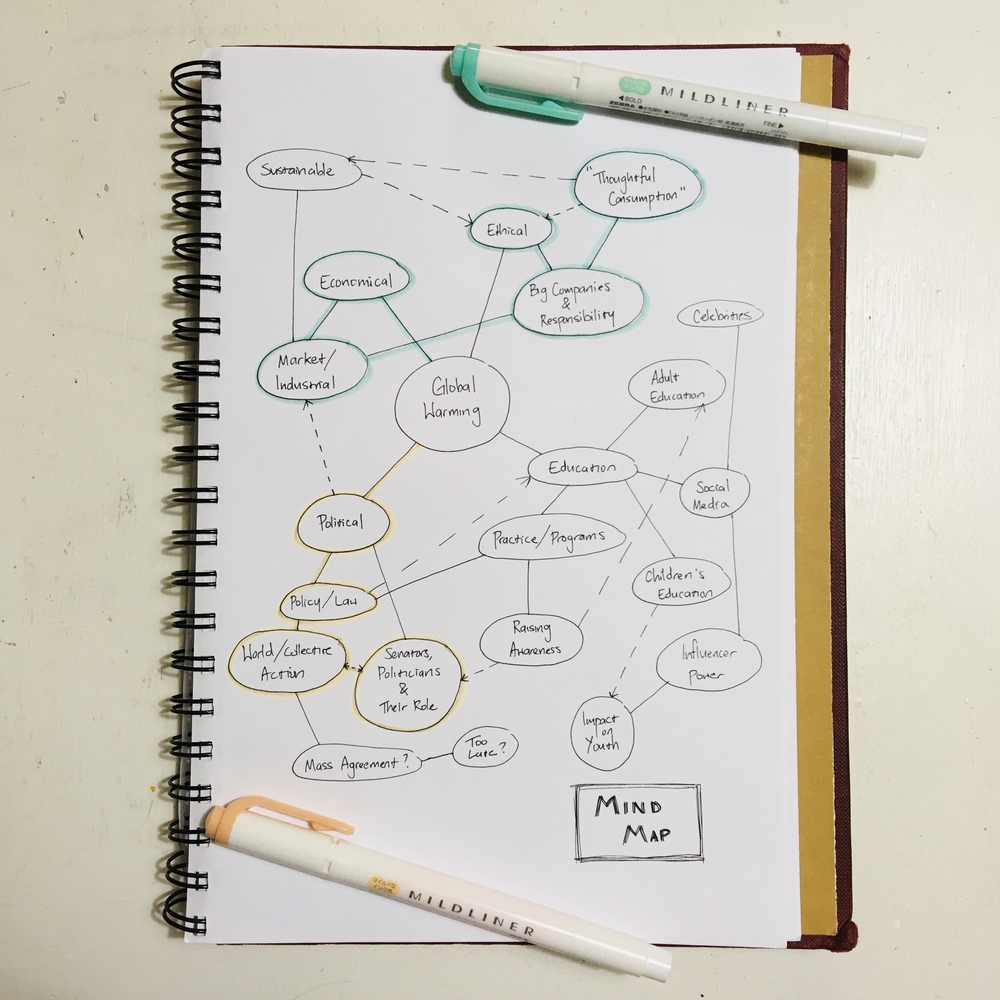 MILDLINER
◀BOLD
ZEBRA
FINE▶
Sustainable
"Thoughtful
Consumption"
Ethical
Economical
Big Companies
&
Responsibility
Celebrities
Market/
Industrial
Global
Warming
Adult
Education
Education
Social
Media
Political
Practice/Programs
Children's
Education
Policy/Law
Raising
Awareness
World/Collective
Action
Senators,
Politicians
&
Their Role
Influencer
Power
Impact
on
Youth
Mass Agreement?
Too
Late?
MIND
MAP
マイルド橙
MILDLINER